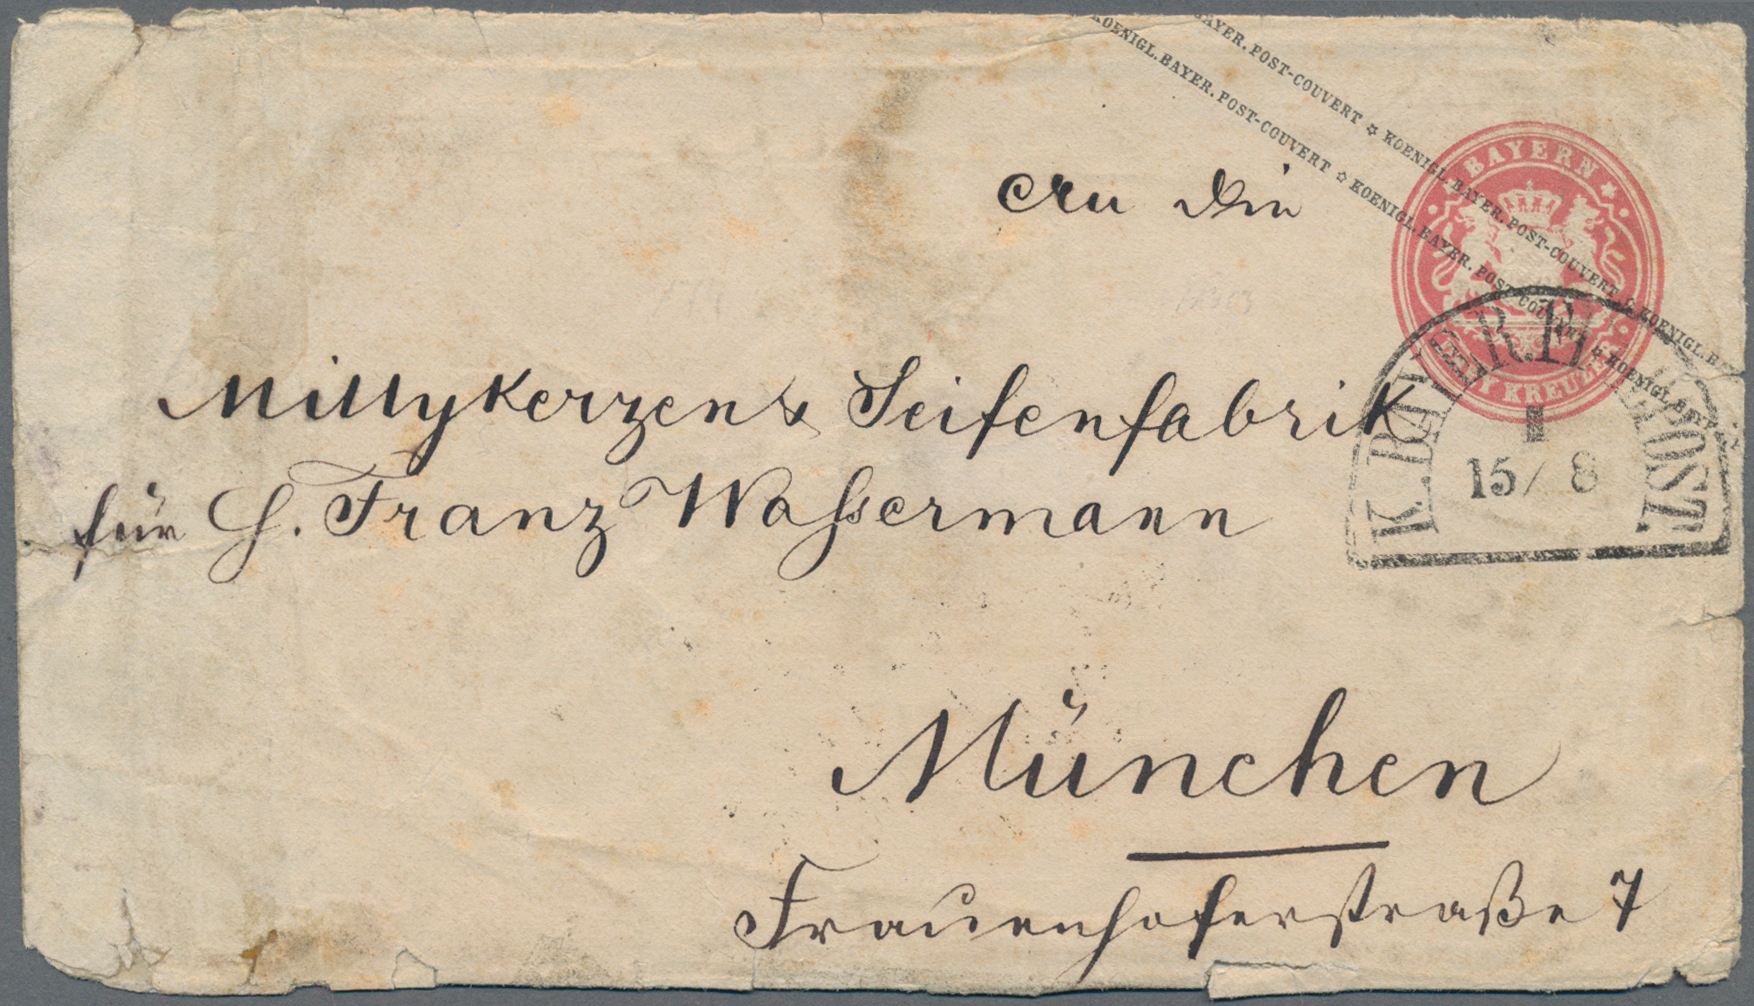 BAYER. POST-COUVERT ☆ KOENIGL. BAYER. POST-COUVERT ☆ KOENIGL. B
KOENIGL. BAYER. POST-COUVERT ☆ KOENIGL. BAYER. POST-COUVERT ☆ KOENIGL. BAYER
BAYERN
KREUZER
An Die
Millykerzen & Seifenfabrik
für H. Franz Waßermann
K. BAYER. FL. POST.
II
15/ 8
München
Frauenhoferstraße 7